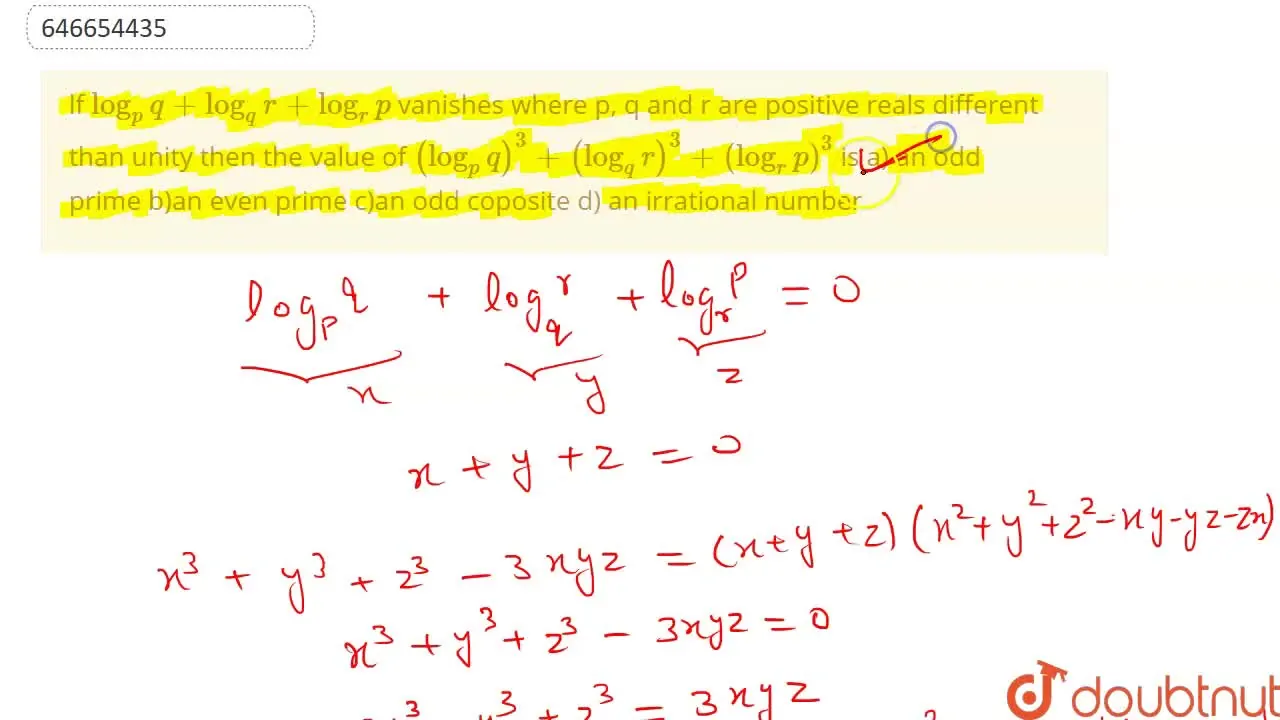 646654435
If log_p q + log_q r + log_r p vanishes where p, q and r are positive reals different
than unity then the value of (log_p q)^3 + (log_q r)^3 + (log_r p)^3 is a) an odd
prime b)an even prime c)an odd coposite d) an irrational number
log_p q + log_q r + log_r p = 0
x y z
x + y + z = 0
x^3 + y^3 + z^3 - 3xyz = (x+y+z)(x^2+y^2+z^2-xy-yz-zx)
x^3 + y^3 + z^3 - 3xyz = 0
x^3 + y^3 + z^3 = 3xyz
doubtnut